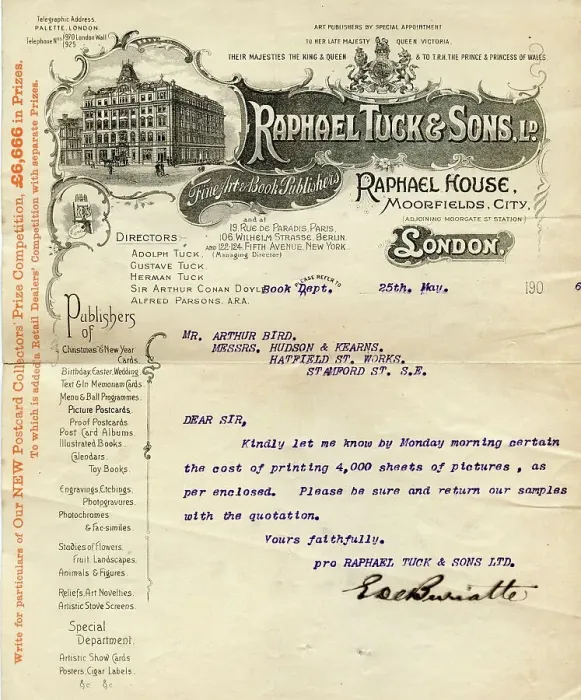 Telegraphic Address,
PALETTE, LONDON.
Telephone Nos 1970 London Wall
1925
ART PUBLISHERS BY SPECIAL APPOINTMENT
TO HER LATE MAJESTY QUEEN VICTORIA,
THEIR MAJESTIES THE KING & QUEEN & TO T.R.H. THE PRINCE & PRINCESS OF WALES
RAPHAEL TUCK & SONS, LD.
Fine Art & Book Publishers
RAPHAEL HOUSE,
MOORFIELDS, CITY,
(ADJOINING MOORGATE ST STATION)
LONDON,
and at
19, RUE DE PARADIS, PARIS.
106, WILHELM STRASSE, BERLIN.
AND 122-124, FIFTH AVENUE, NEW YORK.
DIRECTORS
ADOLPH TUCK, (Managing Director)
GUSTAVE TUCK,
HERMAN TUCK
SIR ARTHUR CONAN DOYLE
ALFRED PARSONS, A.R.A.
Book Dept.
25th. May. 190 6
MR. ARTHUR BIRD.
MESSRS. HUDSON & KEARNS.
HATFIELD ST. WORKS.
STAMFORD ST. S.E.
DEAR SIR,
Kindly let me know by Monday morning certain
the cost of printing 4,000 sheets of pictures , as
per enclosed. Please be sure and return our samples
with the quotation.
Yours faithfully.
pro RAPHAEL TUCK & SONS LTD.
Publishers
of
Christmas & New Year
Cards.
Birthday, Easter, Wedding
Text & In Memoriam Cards
Menu & Ball Programmes.
Picture Postcards.
Proof Postcards
Post Card Albums.
Illustrated Books.
Calendars.
Toy Books.
Engravings, Etchings,
Photogravures.
Photochromes
& Fac-similes
Studies of Flowers,
Fruit, Landscapes,
Animals & Figures.
Reliefs, Art Novelties,
Artistic Stove Screens.
Special
Department.
Artistic Show Cards
Posters, Cigar Labels.
&c &c
Write for particulars of Our NEW Postcard Collectors' Prize Competition, £6,666 in Prizes.
To which is added a Retail Dealers' Competition with separate Prizes.